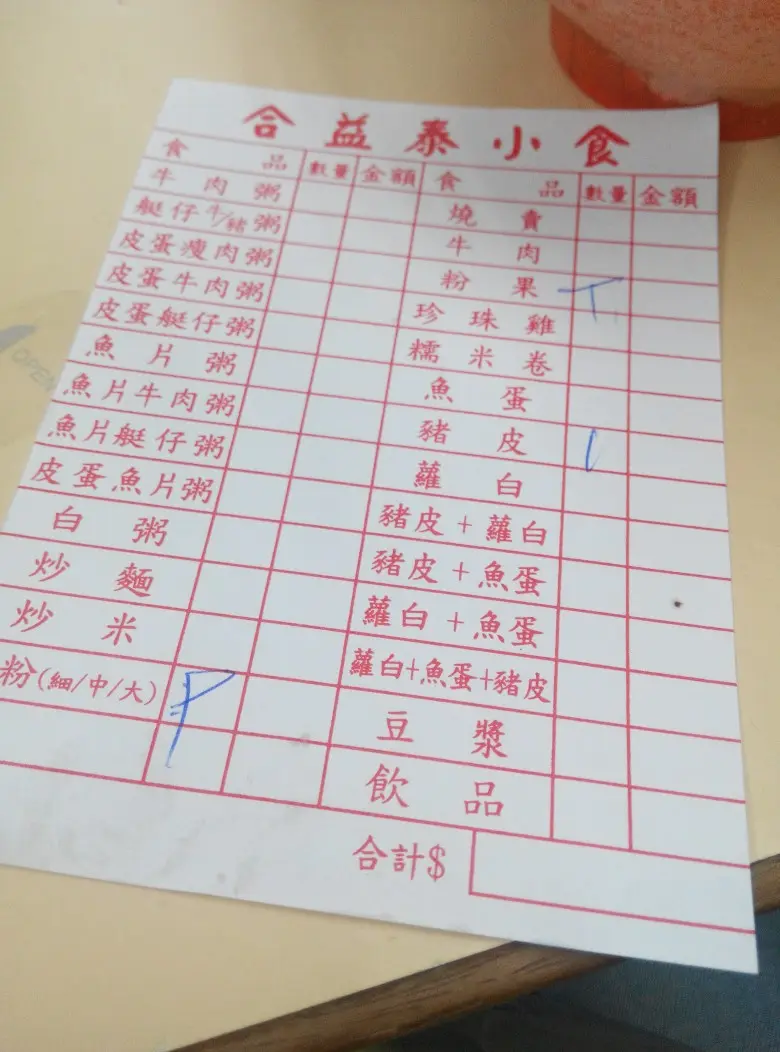 合益泰小食
食品 數量 金額 食品 數量 金額
牛肉粥 燒賣
艇仔牛/豬粥 牛肉
皮蛋瘦肉粥 粉果 T
皮蛋牛肉粥 珍珠雞
皮蛋艇仔粥 糯米卷
魚片粥 魚蛋
魚片牛肉粥 豬皮
魚片艇仔粥 蘿白
皮蛋魚片粥 豬皮+蘿白
白粥 豬皮+魚蛋
炒麵 蘿白+魚蛋
炒米 蘿白+魚蛋+豬皮
粉(細/中/大) 豆漿
飲品
合計$